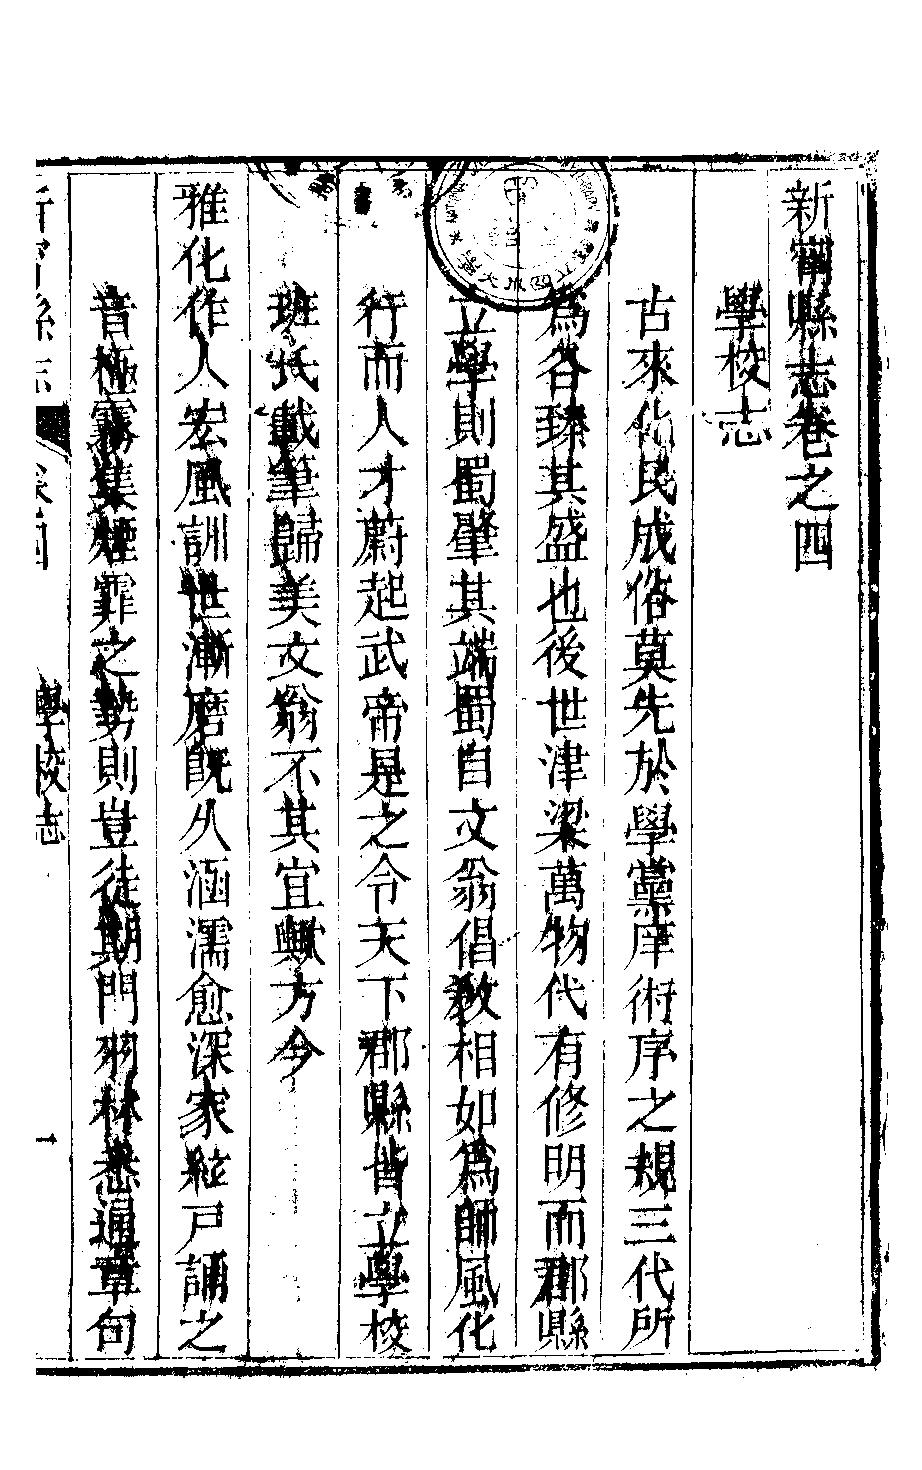 新甯縣志卷之四
學校志
古來化民成俗莫先於學黨庠術序之規三代所
爲各臻其盛也後世津梁萬物代有修明而郡縣
立學則蜀肇其端蜀自文翁倡敎相如爲師風化
行而人才蔚起武帝是之令天下郡縣皆立學校
班氏載筆歸美文翁不其宜歟方今
雅化作人宏風訓世漸磨旣久涵濡愈深家絃戸誦之
音極霧集煙霏之勢則豈徒期門羽林悉通章句
新甯縣志
卷四
學校志
一